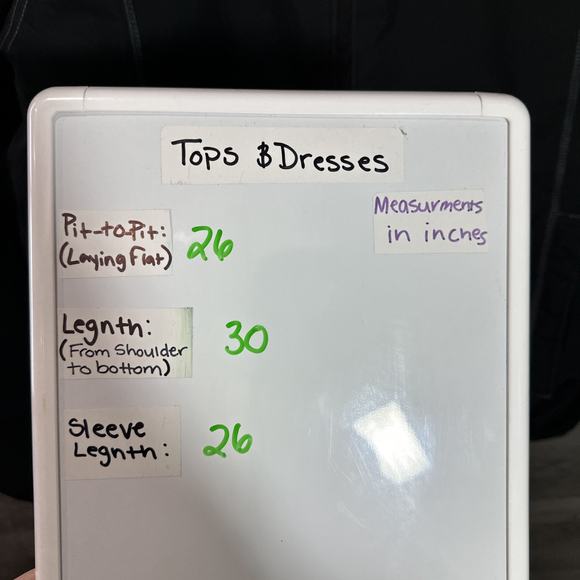 Tops & Dresses
Measurments
in inches
Pit-to-Pit: 26
(Laying Flat)
Legnth: 30
(From Shoulder
to bottom)
Sleeve 26
Legnth: